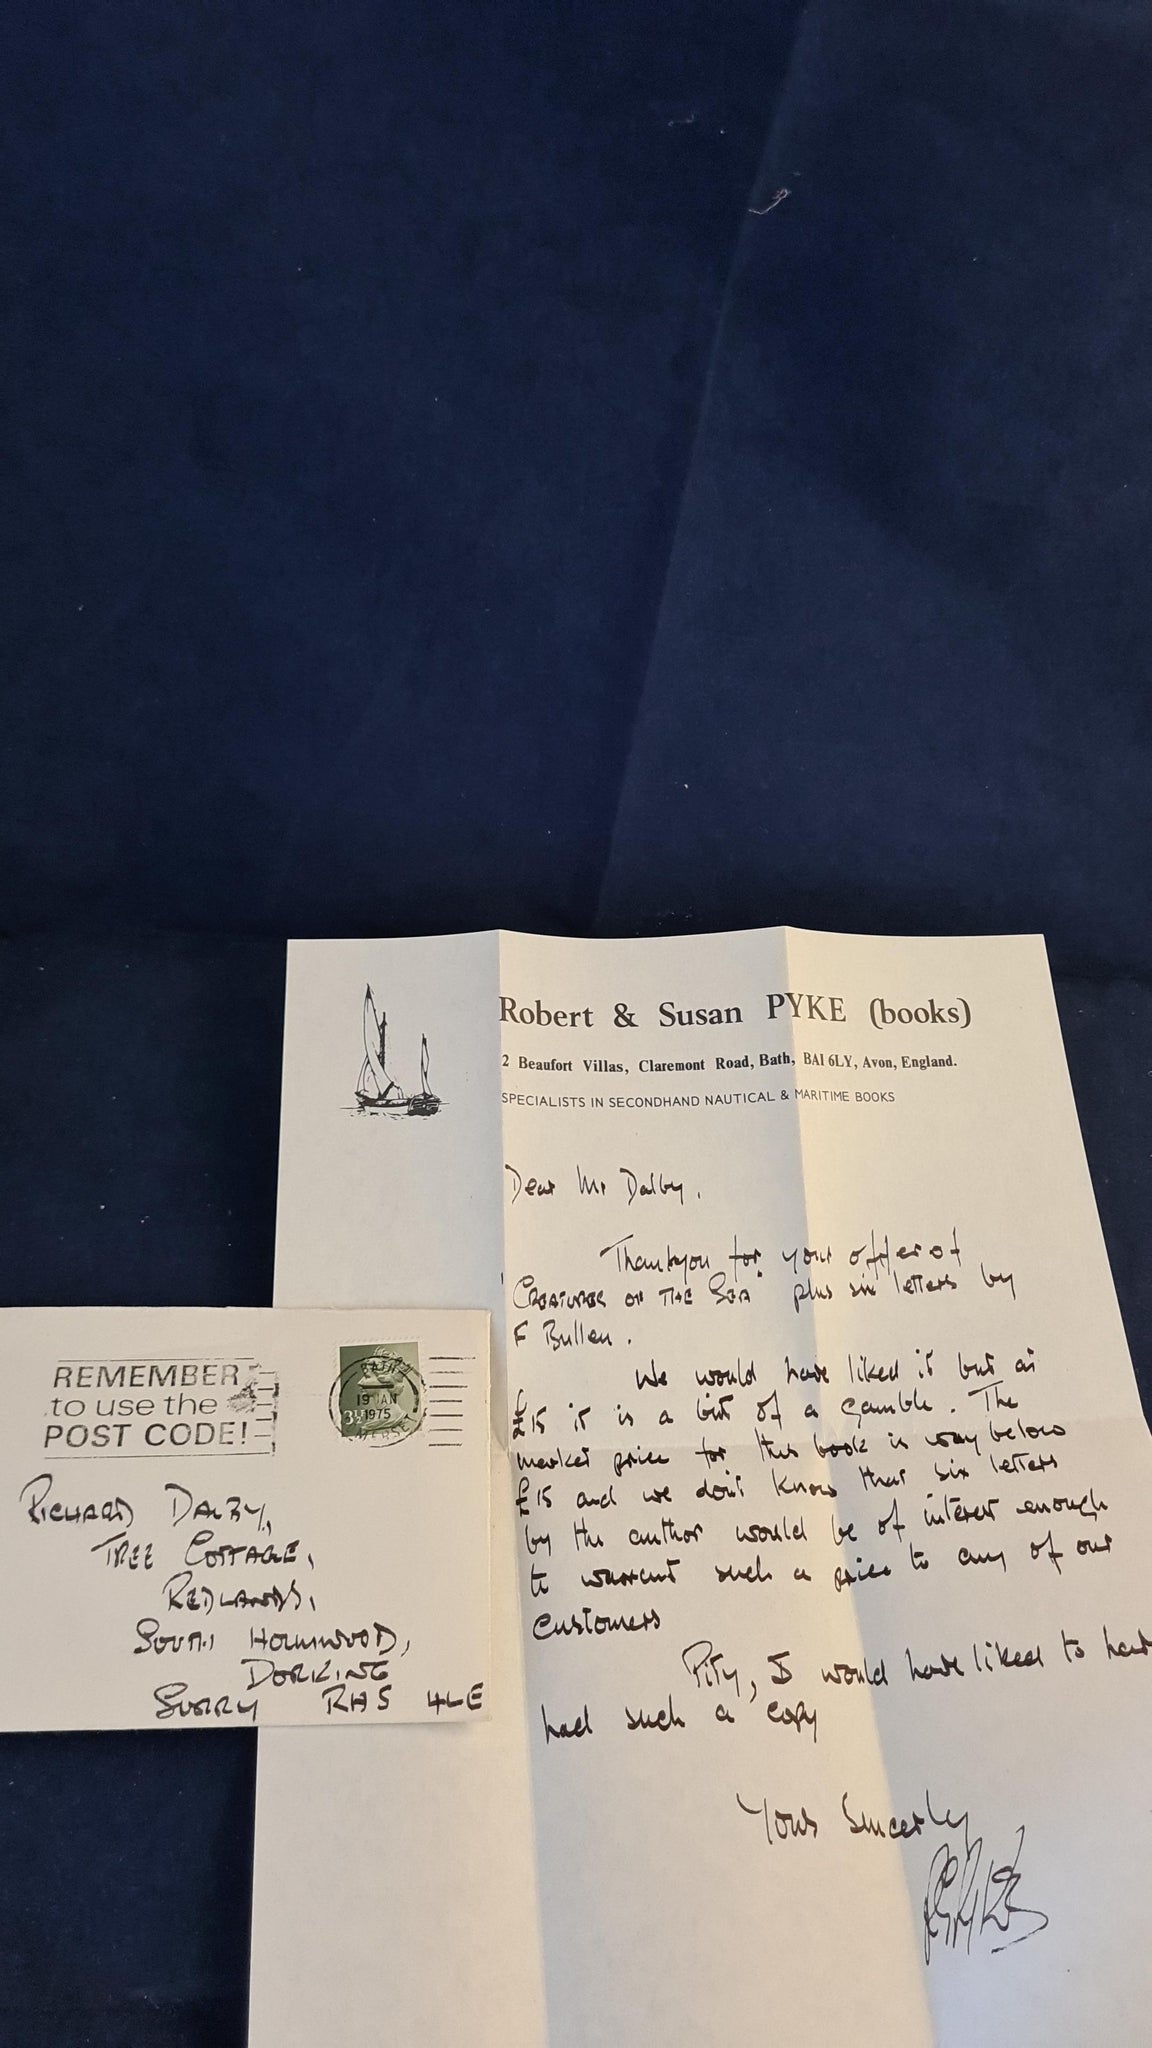 Robert & Susan PYKE (books)
2 Beaufort Villas, Claremont Road, Bath, BA1 6LY, Avon, England.
SPECIALISTS IN SECONDHAND NAUTICAL & MARITIME BOOKS
Dear Mr Dalby,
Thankyou for your offer of
'CREATURES OF THE SEA' plus six letters by
F Bullen.
We would have liked it but at
£15 it is a bit of a gamble. The
market price for this book is way below
£15 and we don't know that six letters
by the author would be of interest enough
to warrant such a price to any of our
customers
Pity, I would have liked to have
had such a copy
Yours Sincerely
REMEMBER
to use the
POST CODE!
BATH
19 JAN
1975
SOMERSET
3½
RICHARD DALBY,
TREE COTTAGE,
REDLANDS,
SOUTH HOLMWOOD,
DORKING
SURRY RH5 4LE